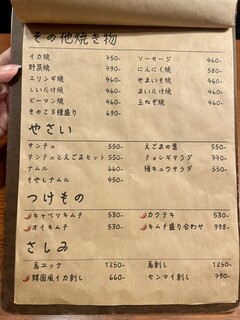 その他焼き物
イカ焼 750-
野菜焼 790-
エリンギ焼 460-
しいたけ焼 460-
ピーマン焼 460-
きのこ3種盛り 690-
ソーセージ 460-
にんにく焼 580-
やまいも焼 460-
まいたけ焼 460-
玉ねぎ焼 460-
やさい
サンチュ 550-
サンチュとえごまセット 550-
ナムル 660-
もやしナムル 450-
えごまの葉 550-
チョレギサラダ 770-
梅キュウサラダ 550-
つけもの
キャベツキムチ 530-
オイキムチ 530-
カクテキ 530-
キムチ盛り合わせ 998-
さしみ
鳥ユッケ 1250-
韓国風イカ刺し 660-
鳥刺し 1250-
センマイ刺し 790-